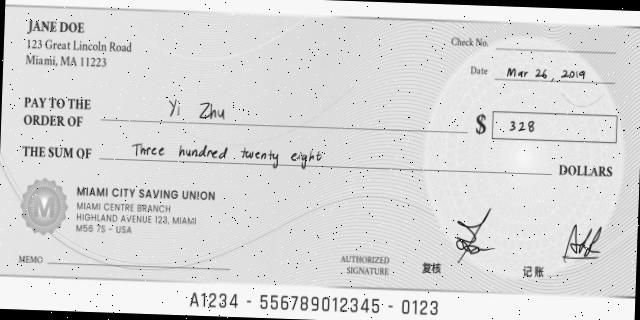 JANE DOE
123 Great Lincoln Road
Miami, MA 11223
Check No.
Date Mar 26, 2019
PAY TO THE
ORDER OF Yi Zhu
$ 328
THE SUM OF Three hundred twenty eight DOLLARS
M
MIAMI CITY SAVING UNION
MIAMI CENTRE BRANCH
HIGHLAND AVENUE 123, MIAMI
M56 7S - USA
MEMO
AUTHORIZED
SIGNATURE
复核
记账
A1234 - 556789012345 - 0123